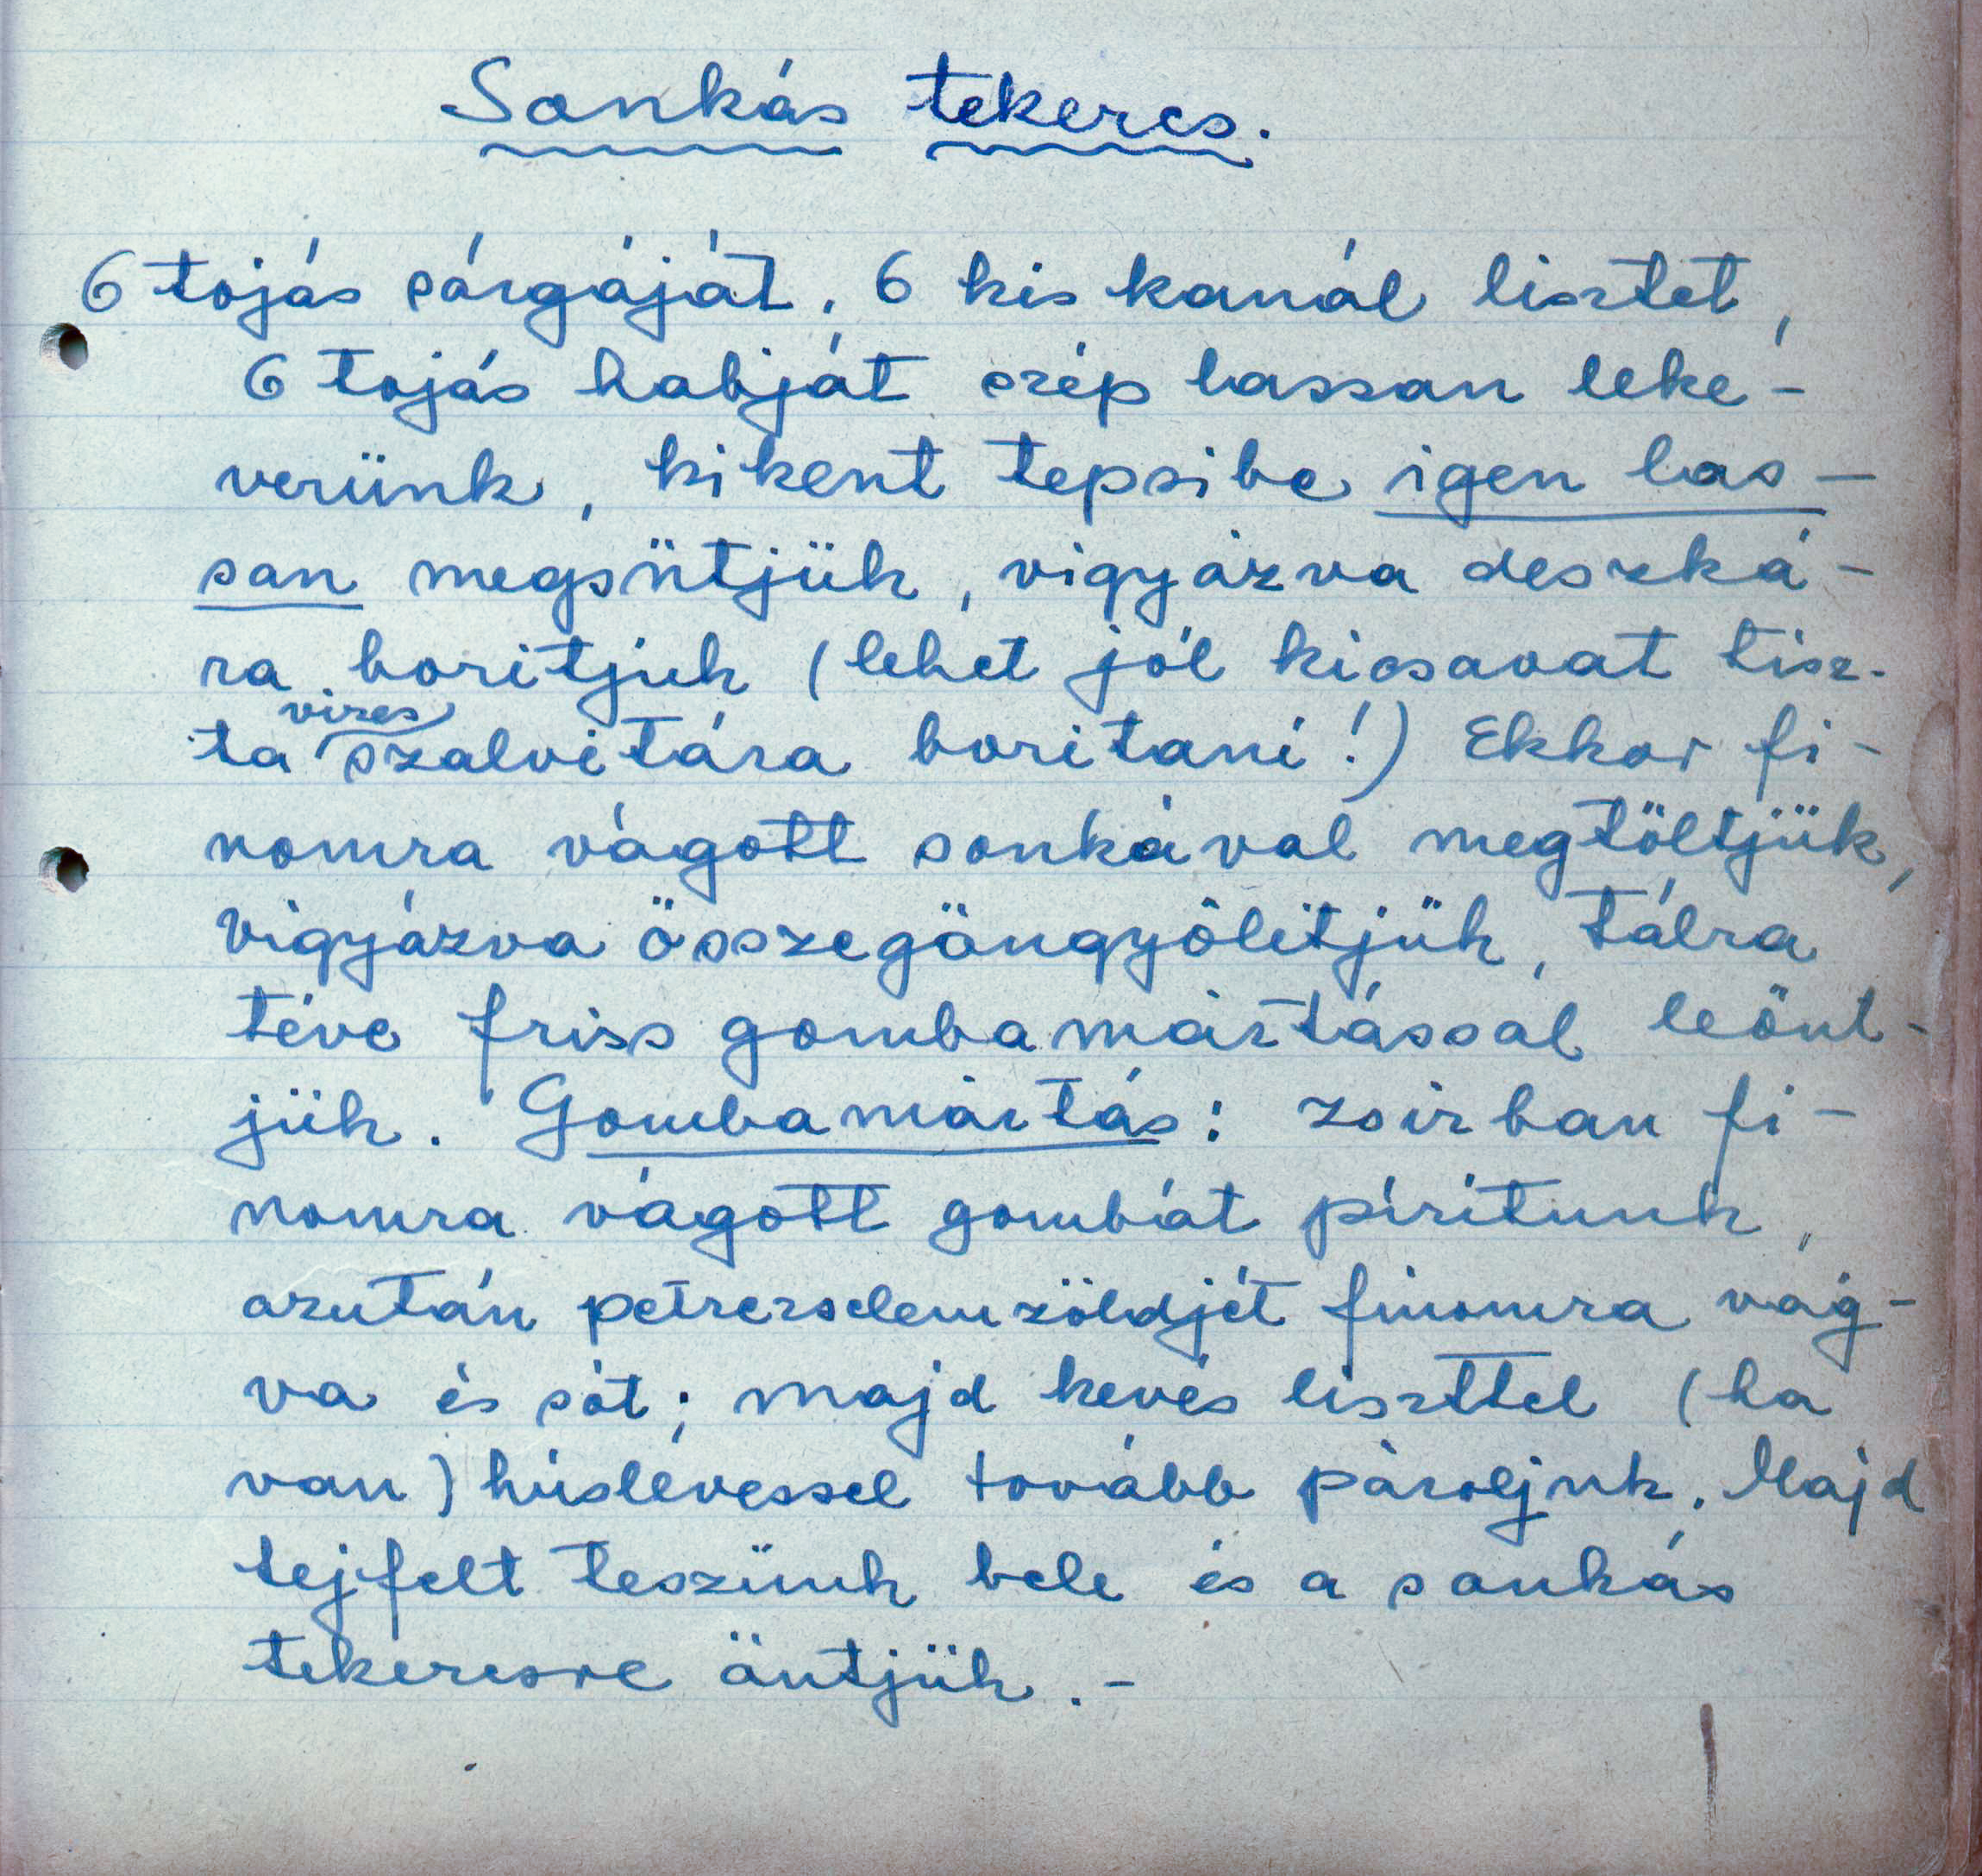 Sonkás tekercs.
6 tojás sárgáját, 6 kis kanál lisztet,
6 tojás habját szép lassan leke-
verünk, kikent tepsibe igen las-
san megsütjük, vigyázva deszká-
ra boritjuk (lehet jól kicsavat tisz-
vizes
ta szalvitára boritani!) Ekkor fi-
nomra vágott sonkával megtöltjük,
vigyázva összegöngyölitjük, tálra
téve friss gombamártással leönt-
jük. Gombamártás: zsirban fi-
nomra vágott gombát piritunk,
azután petrezselemzöldjét finomra vág-
va és sót; majd kevés liszttel (ha
van) húslevessel tovább pároljuk. Majd
tejfelt teszünk bele és a sonkás
tekercsre öntjük.-